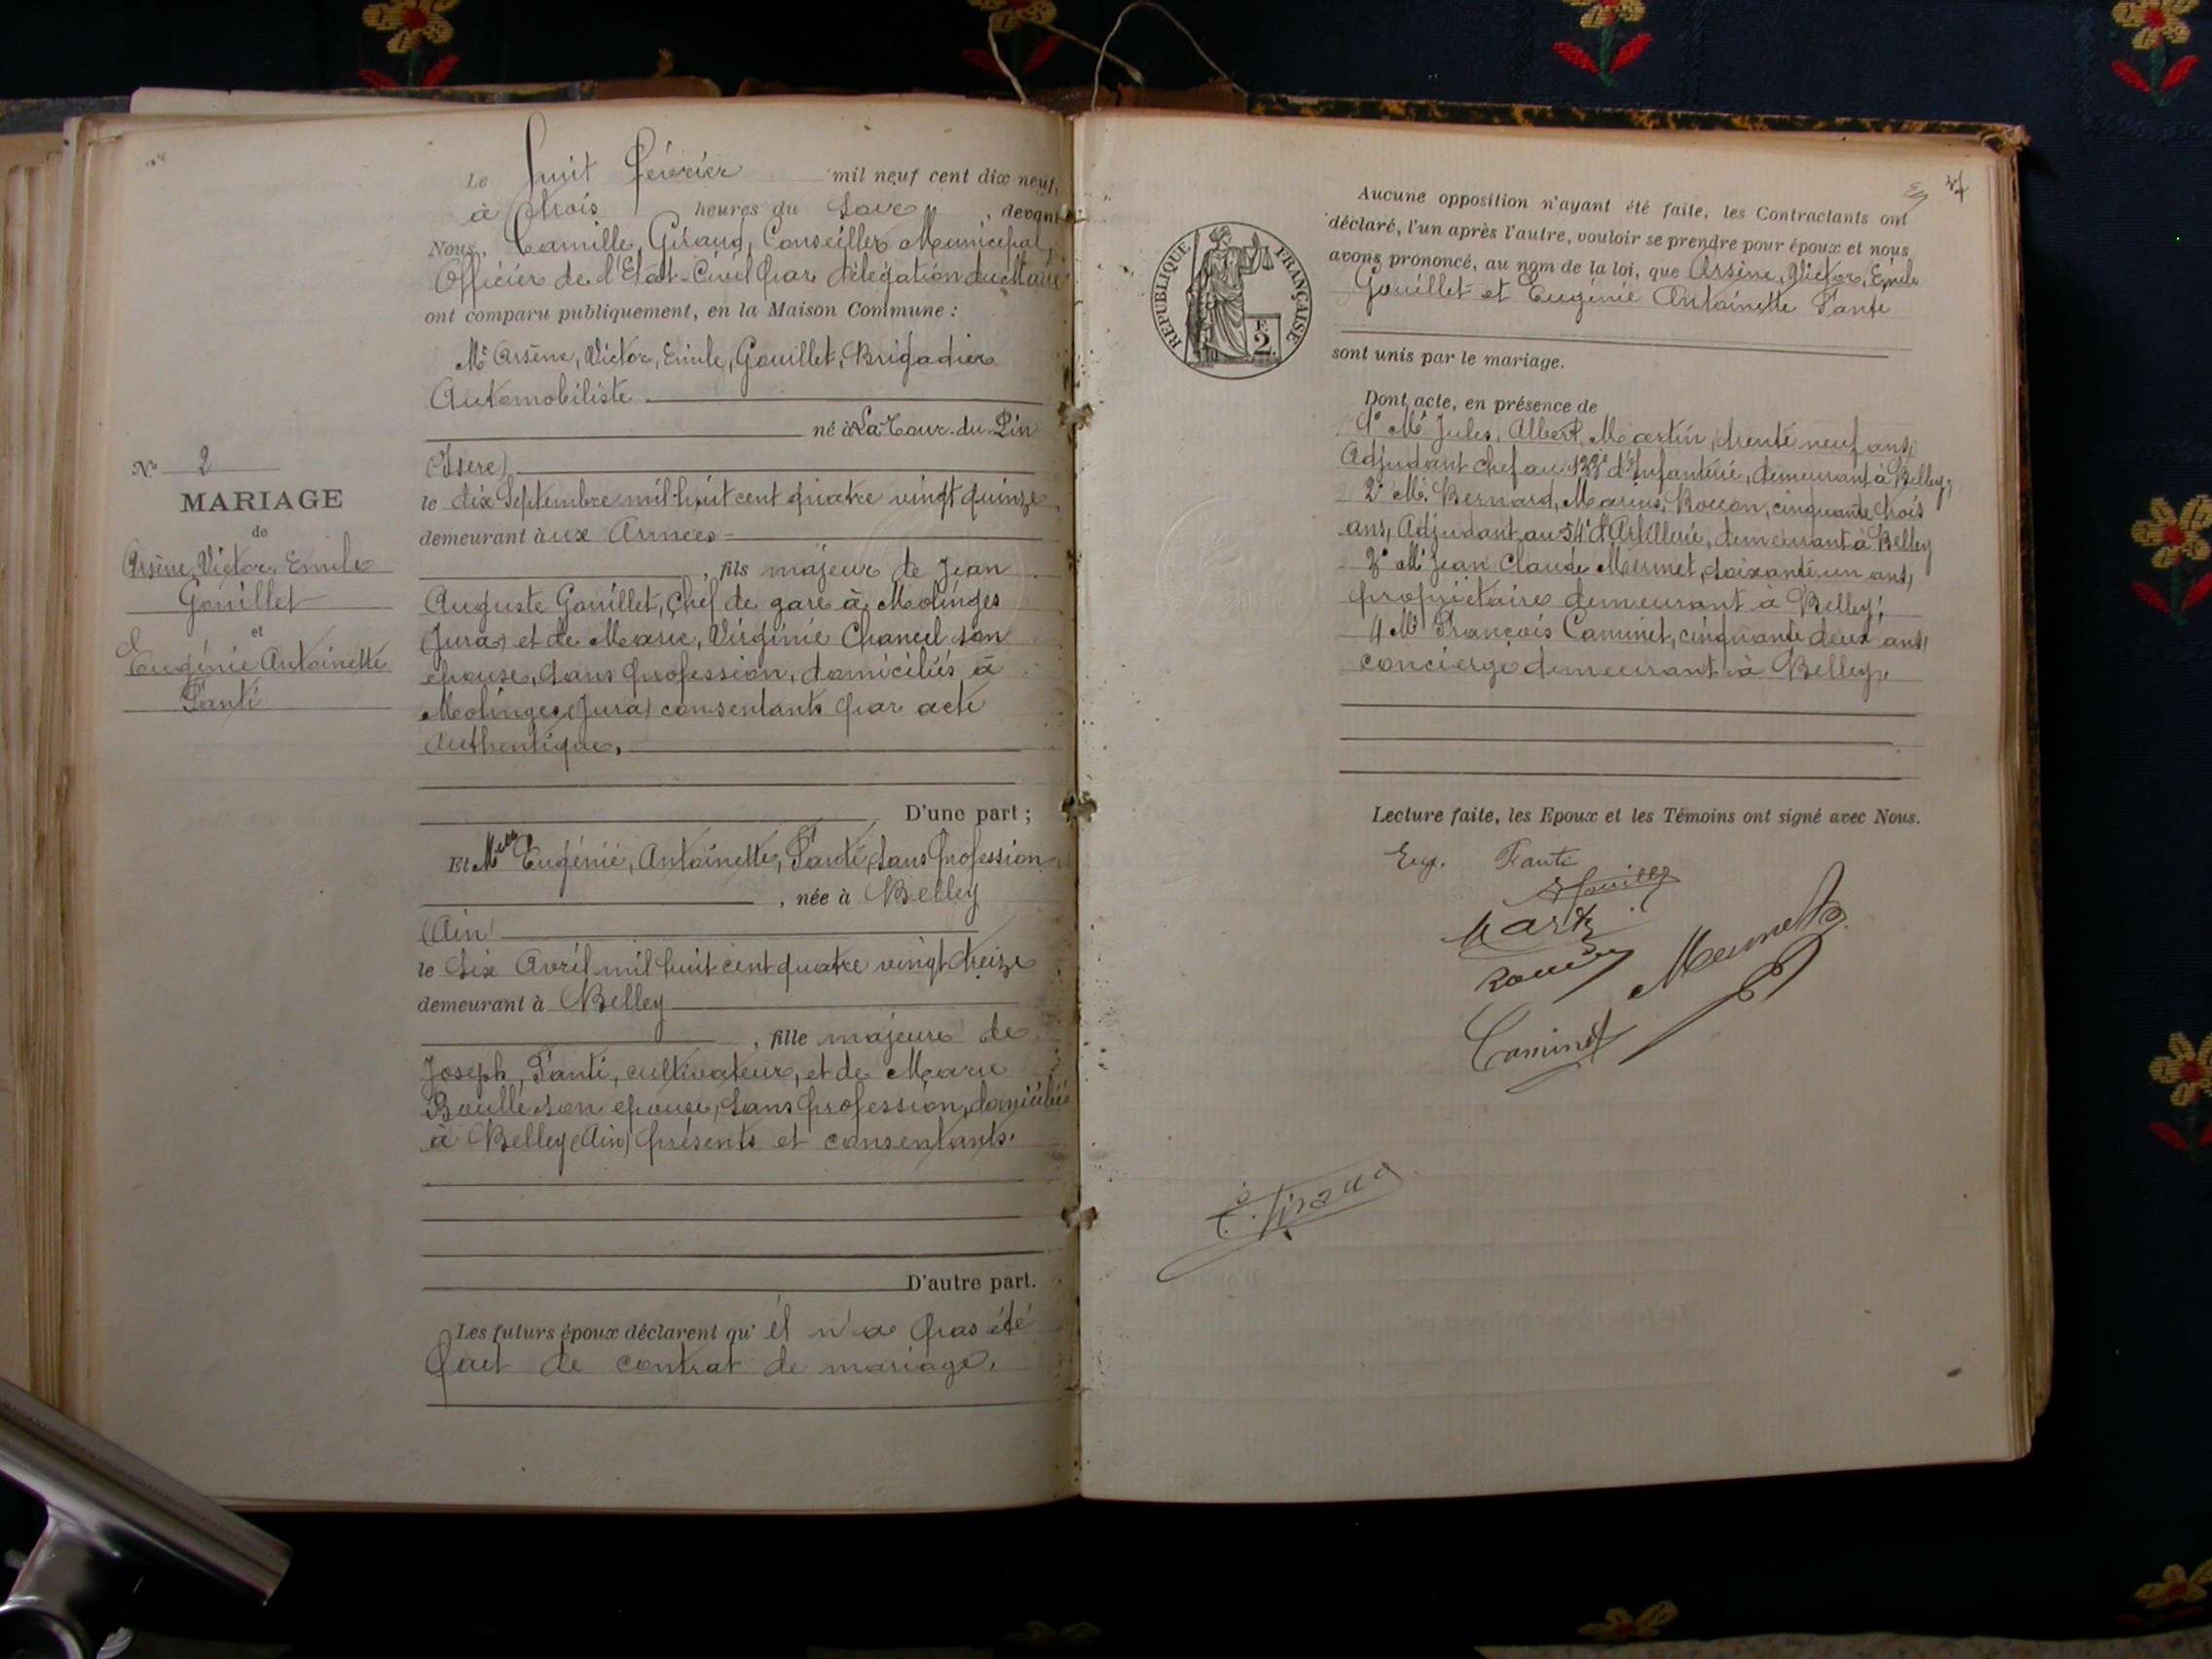 Le huit février mil neuf cent dix neuf,
à trois heures du soir, devant
Nous, Camille Giraud, Conseiller Municipal,
Officier de l'Etat-Civil par délégation du Maire
ont comparu publiquement, en la Maison Commune :
Mr Arsène, Victor, Emile, Gouillet, Brigadier
Automobiliste
né à La Tour-du-Pin
(Isère)
le dix Septembre mil huit cent quatre vingt quinze
demeurant aux Armées
, fils majeur de Jean
Auguste Gouillet, Chef de gare à Molinges
(Jura) et de Marie, Virginie Chancel son
épouse, sans profession, domiciliés à
Molinges (Jura) consentants par acte
authentique,
D'une part ;
Et Melle Eugénie, Antoinette, Fanti, sans profession
, née à Belley
(Ain)
le six Avril mil huit cent quatre vingt treize
demeurant à Belley
, fille majeure de
Joseph, Fanti, cultivateur, et de Marie
Boullé son épouse, sans profession, domiciliés
à Belley (Ain) présents et consentants.
D'autre part.
Les futurs époux déclarent qu'il n'a pas été
fait de contrat de mariage.
No 2
MARIAGE
de
Arsène, Victor, Emile
Gouillet
et
Eugénie Antoinette
Fanti
RÉPUBLIQUE FRANÇAISE
2F
Aucune opposition n'ayant été faite, les Contractants ont
déclaré, l'un après l'autre, vouloir se prendre pour époux et nous
avons prononcé, au nom de la loi, que Arsène, Victor, Emile
Gouillet et Eugénie Antoinette Fante
sont unis par le mariage.
Dont acte, en présence de
1° Mr Jules, Albert, Martin, trente neuf ans,
Adjudant chef au 133e d'Infanterie, demeurant à Belley,
2° Mr Bernard, Marius, Roucon, cinquante trois
ans, Adjudant au 54e d'Artillerie, demeurant à Belley
3° Mr Jean Claude Mermet, soixante un ans,
propriétaire demeurant à Belley,
4 Mr François Caminet, cinquante deux ans,
concierge demeurant à Belley,
Lecture faite, les Epoux et les Témoins ont signé avec Nous.
Eug. Fanti
Gouillet
Martin
Mermet
Caminet
C. Giraud